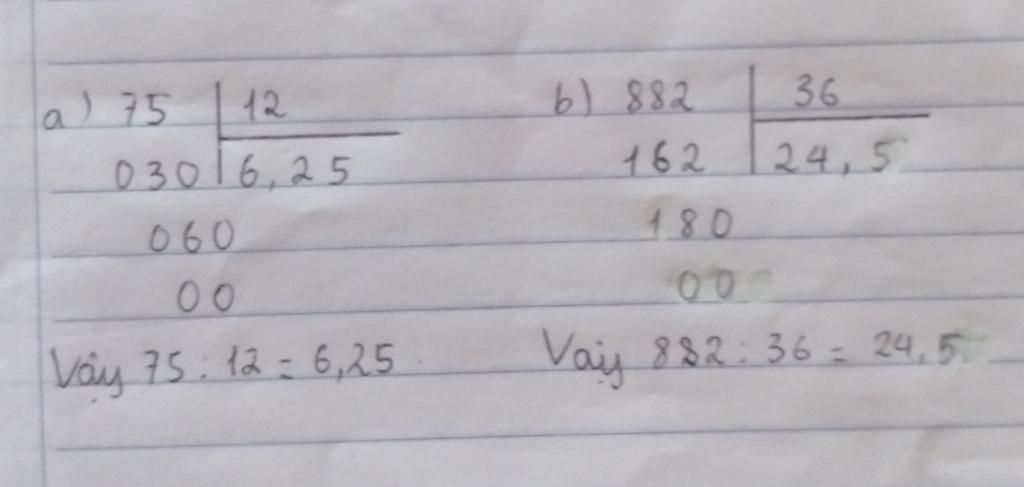 a) 75 | 12 b) 882 | 36
030 | 6,25 162 | 24,5
060 180
00 00
Vậy 75 : 12 = 6,25 Vậy 882 : 36 = 24,5